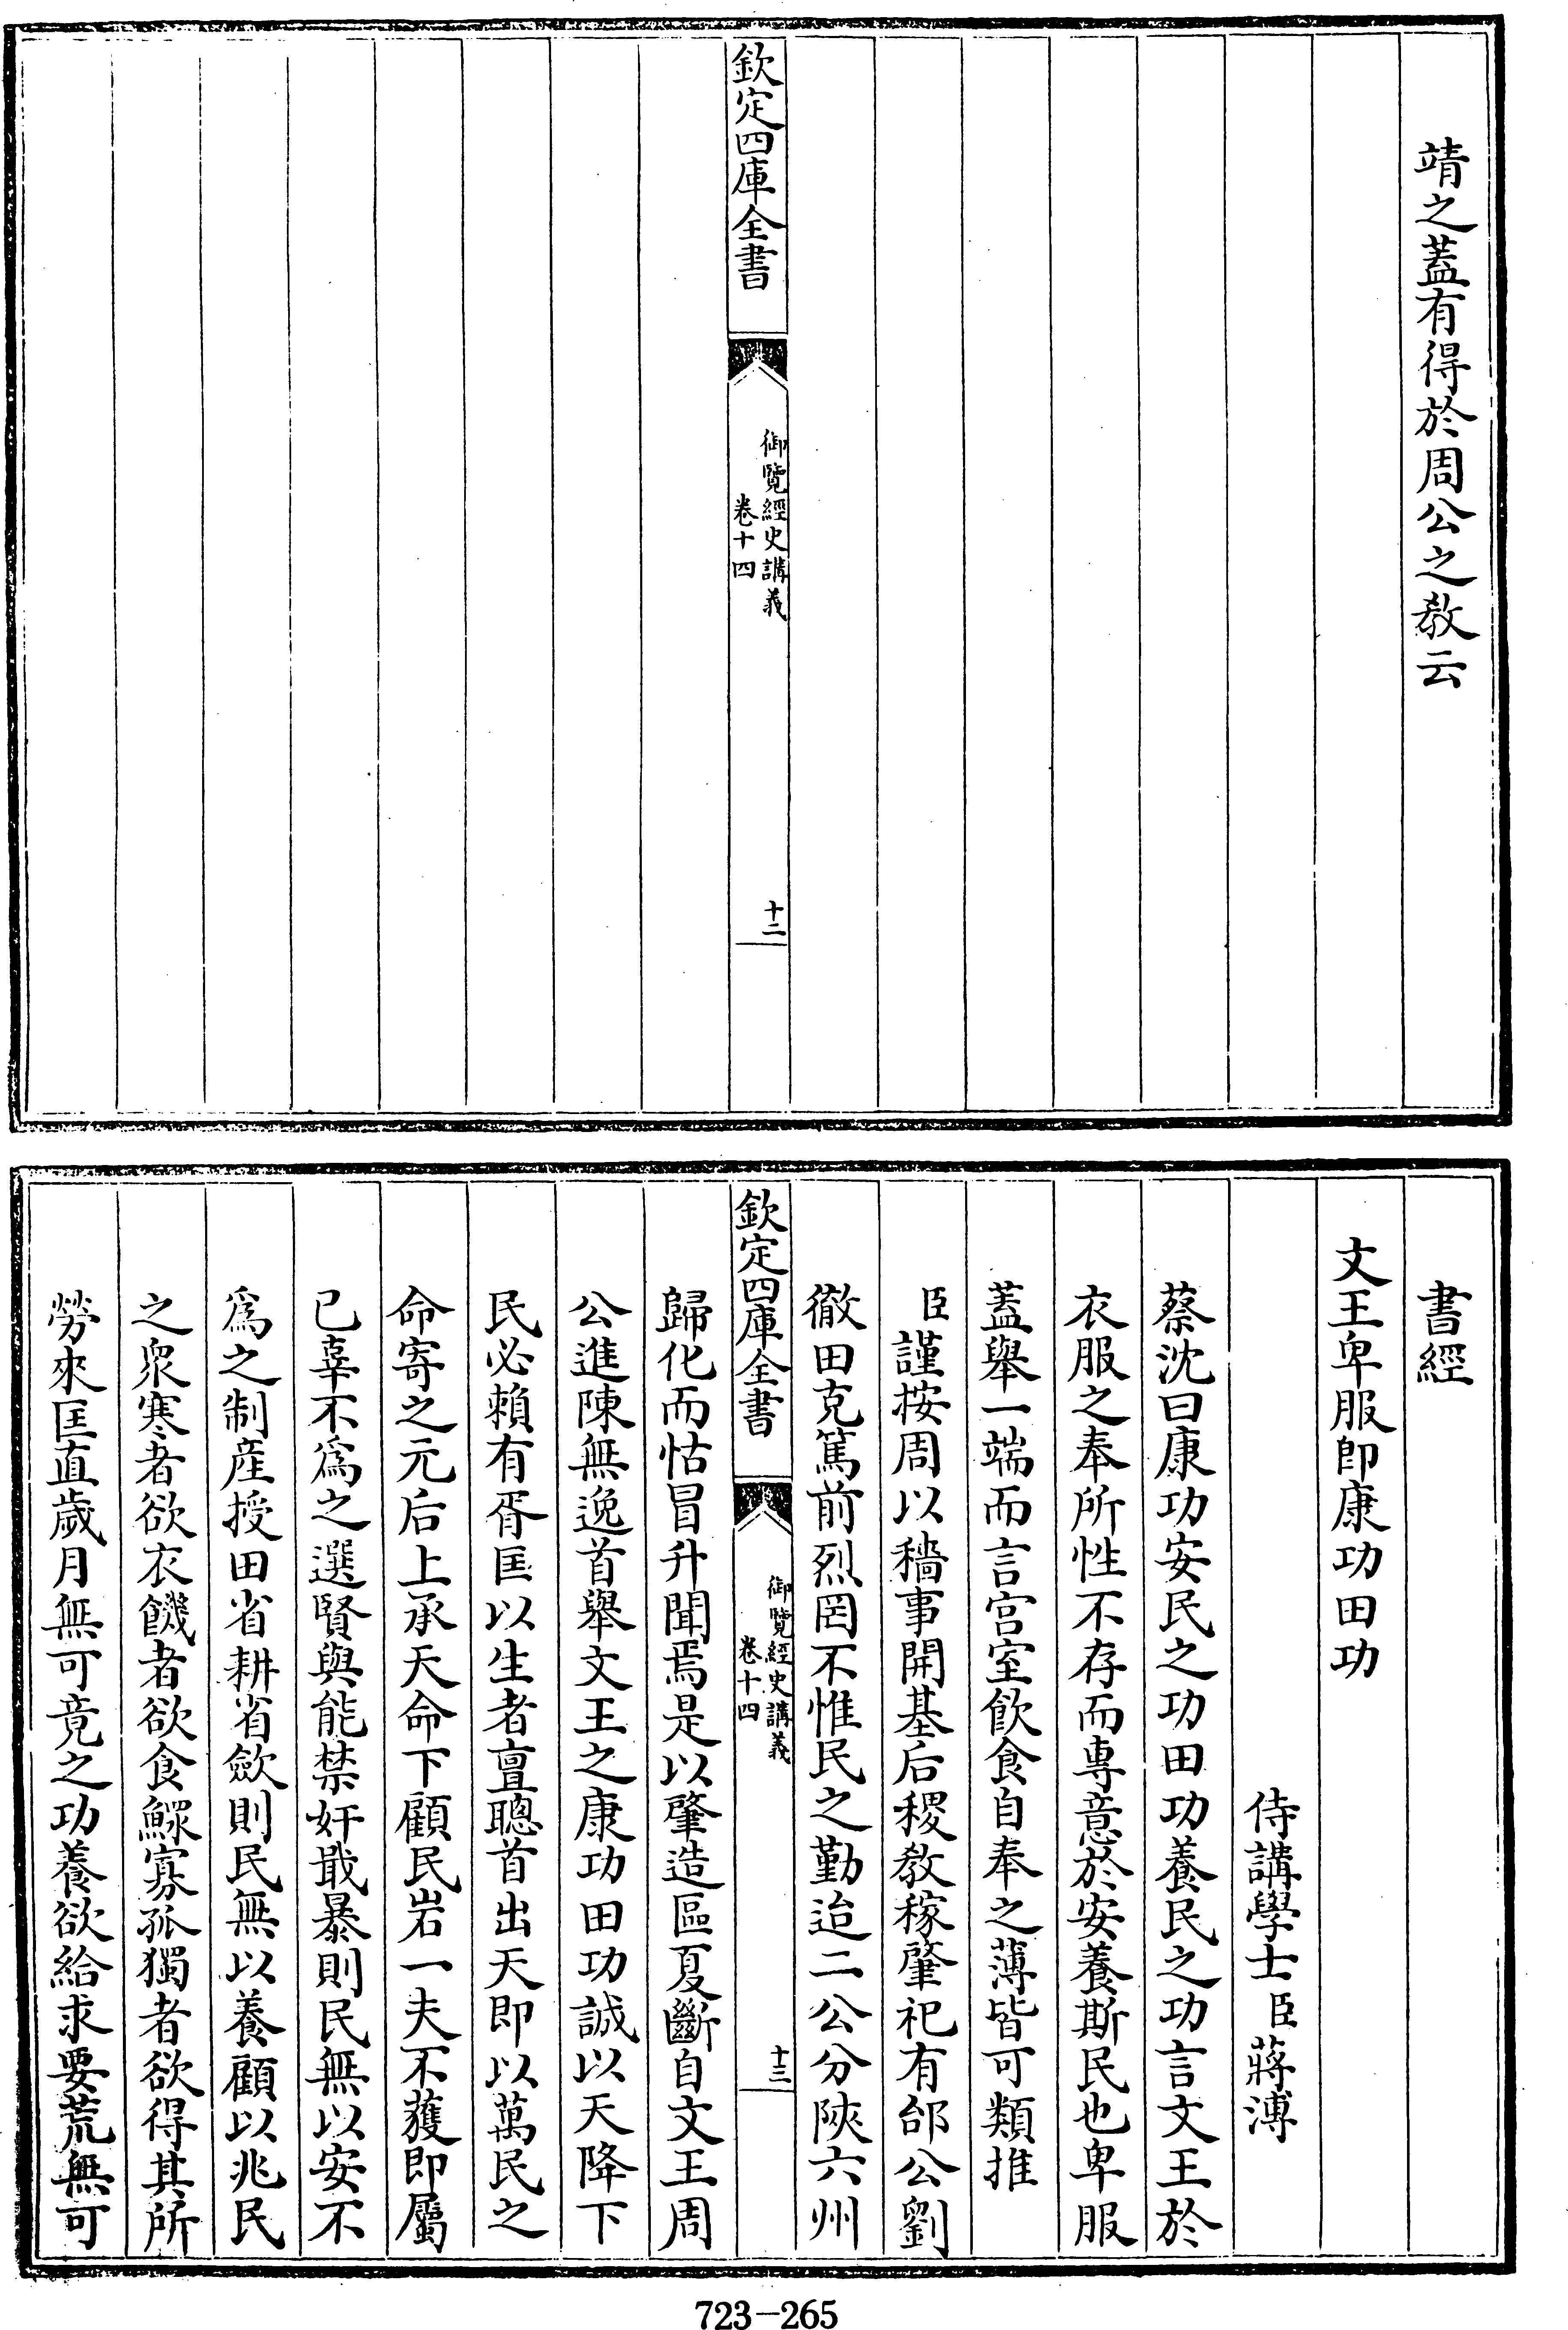 靖之蓋有得於周公之教云
欽定四庫全書
御覽經史講義
卷十四
十二
書經
文王卑服即康功田功
侍講學士臣蔣溥
蔡沈曰康功安民之功田功養民之功言文王於
衣服之奉所性不存而專意於安養斯民也卑服
蓋舉一端而言宫室飲食自奉之薄皆可類推
臣謹按周以穡事開基后稷教稼肇祀有邰公劉
徹田克篤前烈罔不惟民之勤迨二公分陜六州
欽定四庫全書
御覽經史講義
卷十四
十三
歸化而怙冒升聞焉是以肇造區夏斷自文王周
公進陳無逸首舉文王之康功田功誠以天降下
民必賴有胥匡以生者亶聰首出天即以萬民之
命寄之元后上承天命下顧民岩一夫不獲即屬
已辜不為之選賢與能禁奸戢暴則民無以安不
為之制産授田省耕省斂則民無以養顧以兆民
之衆寒者欲衣饑者欲食鰥寡孤獨者欲得其所
勞來匡直歲月無可竟之功養欲給求要荒無可
723-265